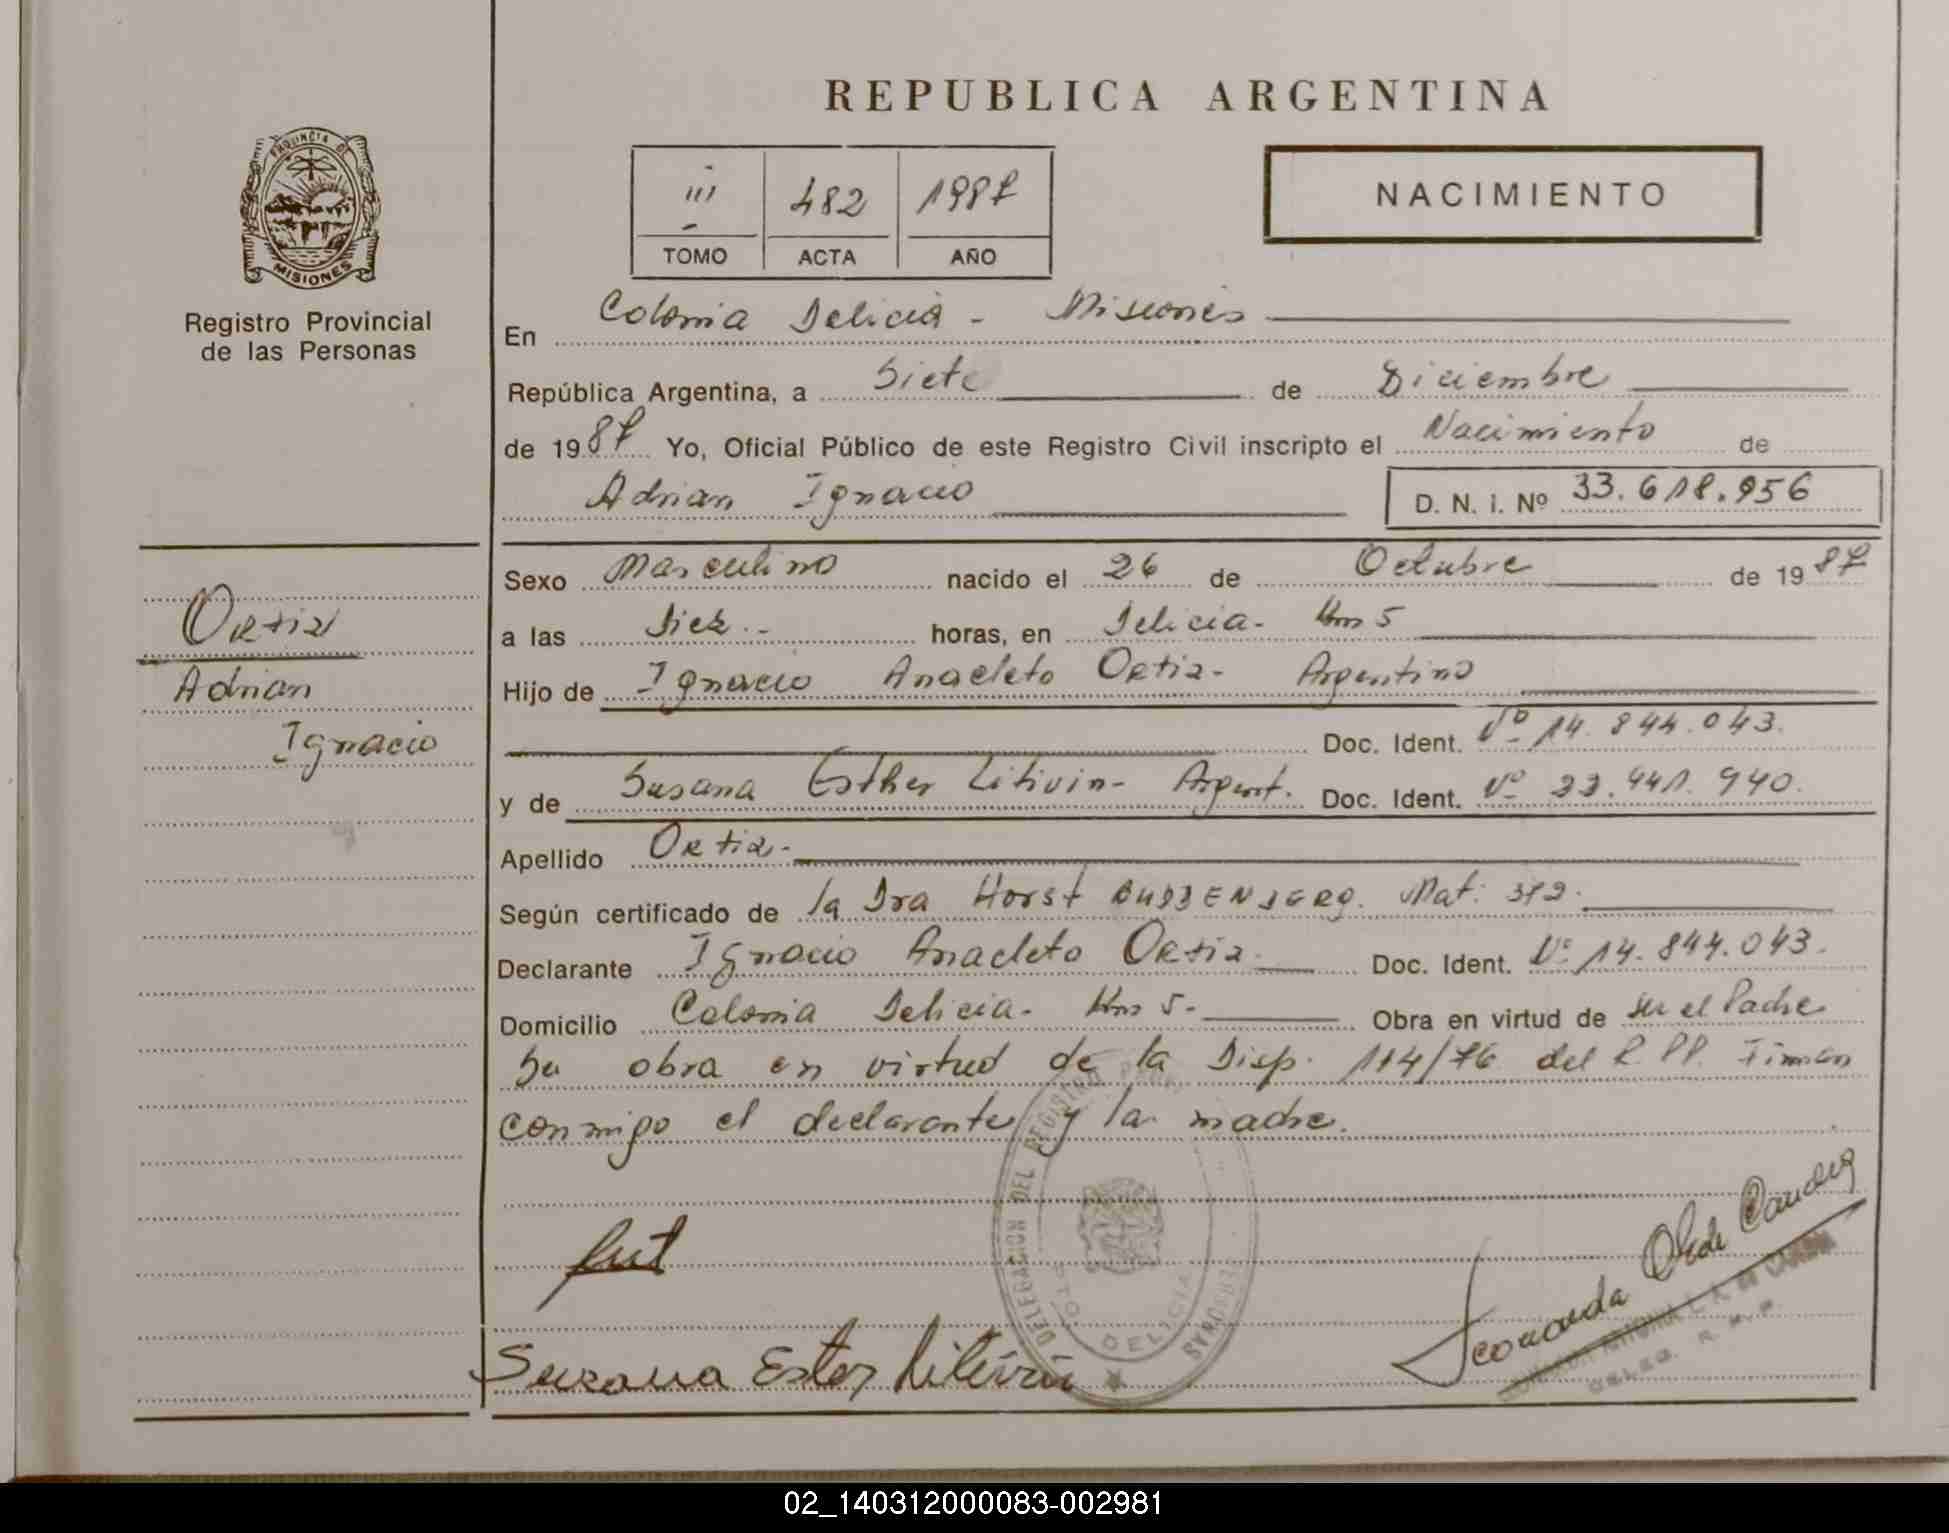 REPUBLICA ARGENTINA
PROVINCIA DE
MISIONES
Registro Provincial
de las Personas
III 482 1987
TOMO ACTA AÑO
NACIMIENTO
En Colonia Delicia - Misiones
República Argentina, a Siete de Diciembre
de 1987 Yo, Oficial Público de este Registro Civil inscripto el Nacimiento de
Adrian Ignacio D. N. I. Nº 33.618.956
Ortiz
Adrian
Ignacio
Sexo Masculino nacido el 26 de Octubre de 1987
a las Diez.- horas, en Delicia - Km 5
Hijo de Ignacio Anacleto Ortiz - Argentino
Doc. Ident. Nº 14.844.043.
y de Susana Esther Litivin - Argent. Doc. Ident. Nº 22.441.940.
Apellido Ortiz -
Según certificado de la Dra Horst Mat: 372.
Declarante Ignacio Anacleto Ortiz Doc. Ident. Nº 14.844.043.
Domicilio Colonia Delicia - Km 5 - Obra en virtud de ser el Padre
Su obra en virtud de la Disp. 114/76 del R.P.P. Firman
conmigo el declarante y la madre.
DELEGACION DEL REGISTRO
DELICIA
Susana Ester Litivin
02_140312000083-002981